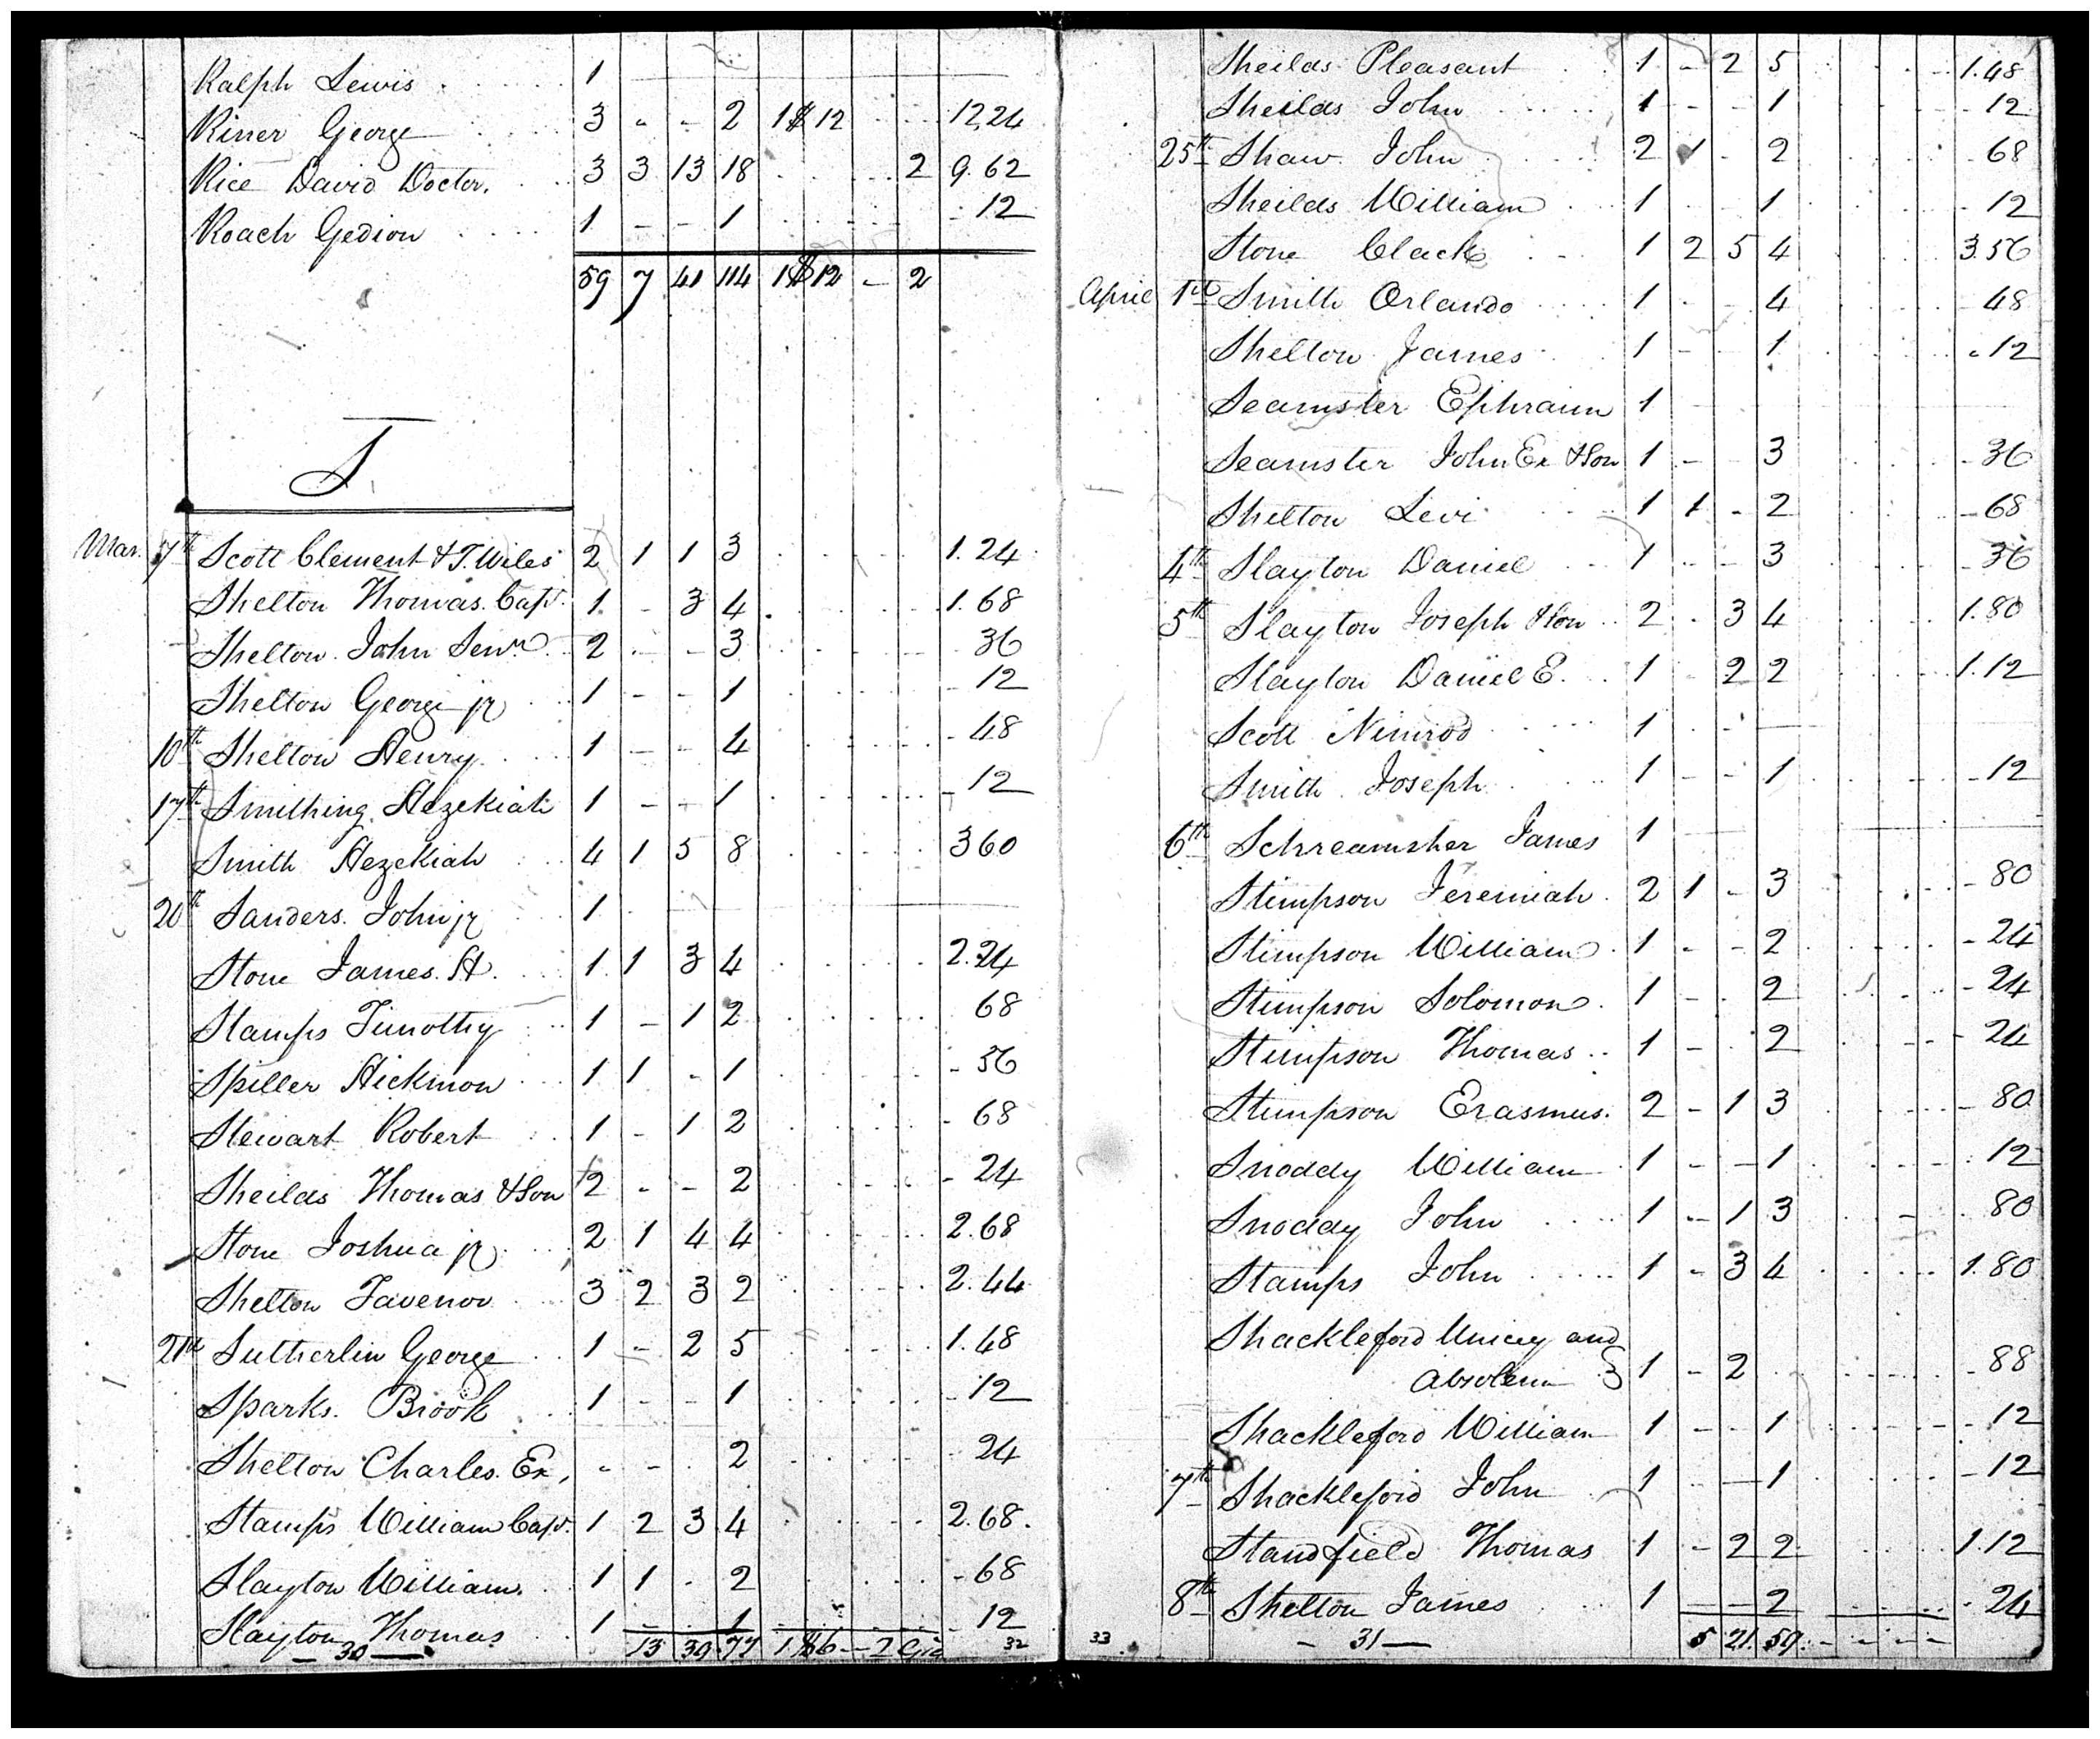 Ralph Lewis 1
Riner George 3 - - 2 1$12 12,24
Rice David Doctor. 3 3 13 18 2 9.62
Roach Gedion 1 - - 1 - 12
59 7 41 114 1$12 - 2
S
Mar. 7th Scott Clement & T. Wiles 2 1 1 3 1.24
Shelton Thomas. Capt. 1 - 3 4 1.68
Shelton John Senr. 2 - - 3 36
Shelton George jr 1 - - 1 - 12
10th Shelton Henry 1 - - 4 - 48
17th Smithing Hezekiah 1 - - 1 - 12
Smith Hezekiah 4 1 5 8 3 60
20th Sanders. John jr 1
Stone James. H. 1 1 3 4 2.24
Stamps Timothy 1 - 1 2 68
Spiller Hickmon 1 1 - 1 - 56
Stewart Robert 1 - 1 2 - 68
Sheilds Thomas & Son 2 - - 2 - 24
Stone Joshua jr 2 1 4 4 2.68
Shelton Tavenor 3 2 3 2 2.44
21th Sutherlin George 1 - 2 5 1.48
Sparks. Brook 1 - - 1 - 12
Shelton Charles. Ex, - - . 2 24
Stamps William Capt. 1 2 3 4 2.68.
Slayton William. 1 1 - 2 - 68
Slayton Thomas 1 - - 1 - 12
— 30 — 13 39 77 1.$6 - - 2 Gig 32
Sheilds Pleasant 1 - 2 5 1.48
Sheilds John 1 - - 1 - 12
25th Shaw John 2 1 - 2 - 68
Sheilds William 1 1 - 12
Stone Clack 1 2 5 4 3.56
April 1st Smith Orlando 1 - 4 48
Shelton James 1 - . 1 - 12
Seamster Ephraim 1 -
Seamster John Ex & Son 1 - 3 - 36
Shelton Levi 1 1 - 2 - 68
4th Slayton Daniel 1 - - 3 - 36
5th Slayton Joseph & Son 2 . 3 4 1.80
Slayton Daniel E. 1 2 2 1.12
Scott Nimrod 1 . - —
Smith Joseph 1 - - 1 - 12
6th Schreamsher James 1
Stimpson Jeremiah. 2 1 - 3 - 80
Stimpson William 1 - - 2 - 24
Stimpson Solomon. 1 - . 2 - 24
Stimpson Thomas 1 - . 2 - 24
Stimpson Erasmus. 2 - 1 3 - 80
Snoddy William 1 - - 1 . 12
Snoddy John 1 - 1 3 . 80
Stamps John 1 - 3 4 1.80
Shackleford Unicey and
Absolem } 1 - 2 - 88
Shackleford William 1 - - 1 - 12
7th Shackleford John 1 - 1 - 12
Standfield Thomas 1 - 2 2 1.12
8th Shelton James 1 - - 2 - 24
33 — 31 — 5 21 59 - - - -